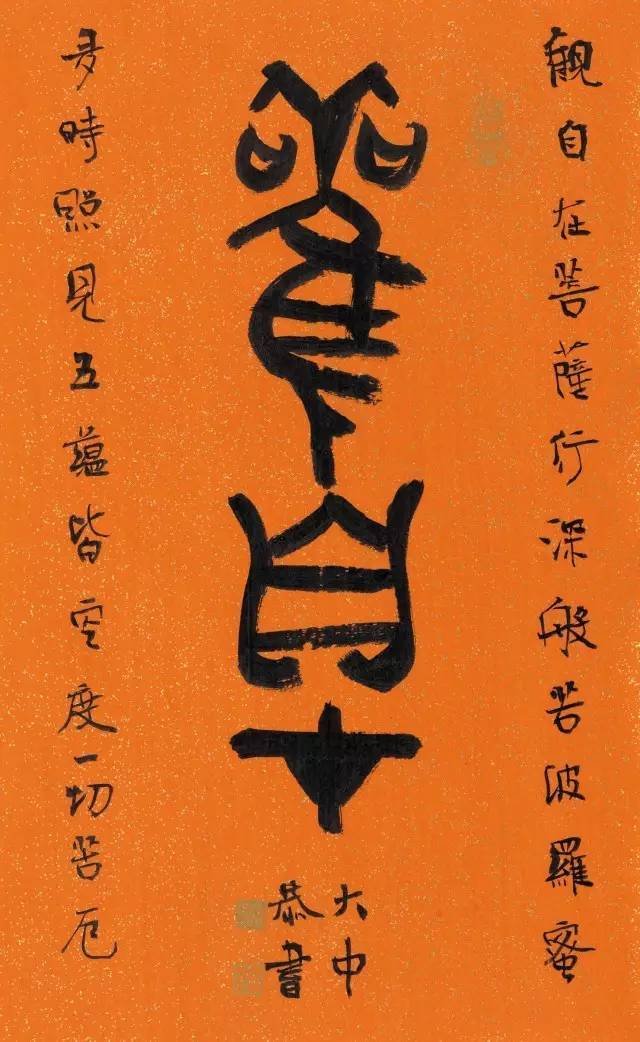 觀自在菩薩行深般若波羅蜜
觀自在
大中
恭書
多時照見五蘊皆空度一切苦厄